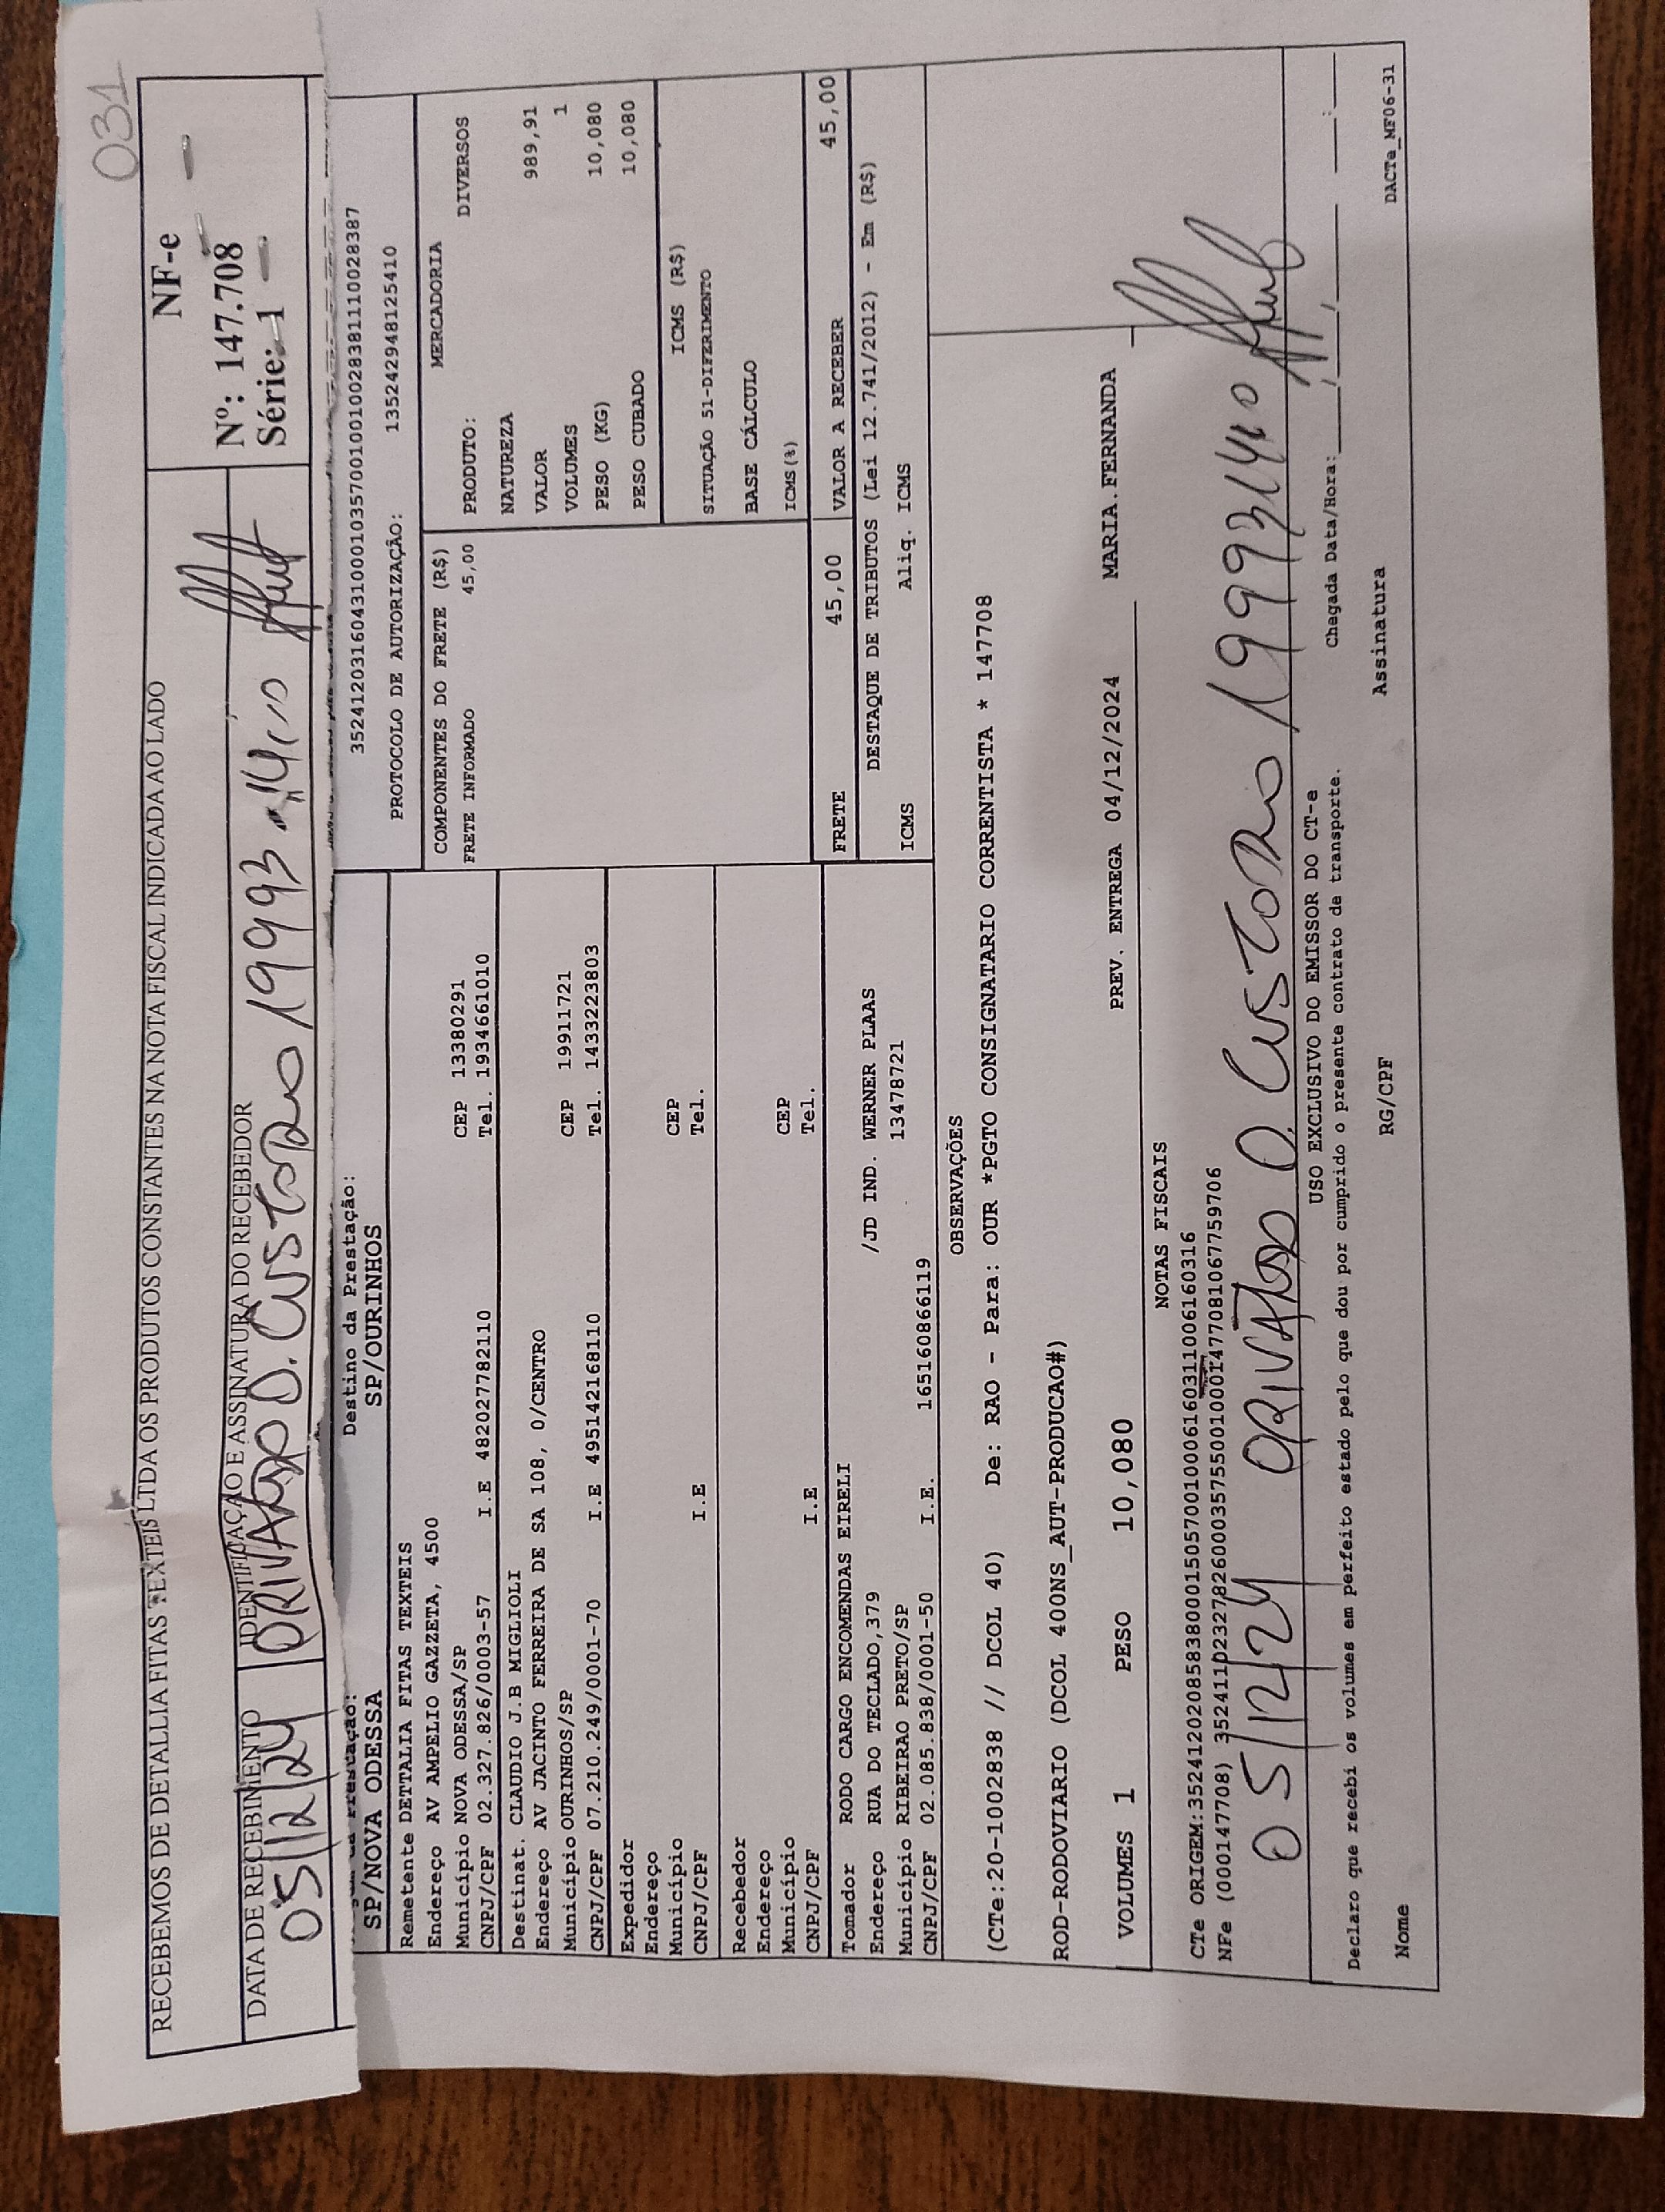 031
RECEBEMOS DE DETALLIA FITAS TEXTEIS LTDA OS PRODUTOS CONSTANTES NA NOTA FISCAL INDICADA AO LADO
NF-e
Nº: 147.708
Série: 1
DATA DE RECEBIMENTO
IDENTIFICAÇÃO E ASSINATURA DO RECEBEDOR
05/12/24 ORIVALDO O. CUSTODIO 19993
Prestação:
SP/NOVA ODESSA
Destino da Prestação:
SP/OURINHOS
35241203160431000103570010010028381110028387
PROTOCOLO DE AUTORIZAÇÃO: 135242948125410
Remetente DETTALIA FITAS TEXTEIS
Endereço AV AMPELIO GAZZETA, 4500
Município NOVA ODESSA/SP CEP 13380291
CNPJ/CPF 02.327.826/0003-57 I.E 482027782110 Tel. 1934661010
Destinat. CLAUDIO J.B MIGLIOLI
Endereço AV JACINTO FERREIRA DE SA 108, 0/CENTRO
Município OURINHOS/SP CEP 19911721
CNPJ/CPF 07.210.249/0001-70 I.E 495142168110 Tel. 1433223803
Expedidor
Endereço
Município CEP
CNPJ/CPF I.E Tel.
Recebedor
Endereço
Município CEP
CNPJ/CPF I.E Tel.
Tomador RODO CARGO ENCOMENDAS EIRELI
Endereço RUA DO TECLADO,379 /JD IND. WERNER PLAAS
Município RIBEIRAO PRETO/SP 13478721
CNPJ/CPF 02.085.838/0001-50 I.E. 165160866119
COMPONENTES DO FRETE (R$)
FRETE INFORMADO 45,00
MERCADORIA
PRODUTO: DIVERSOS
NATUREZA
VALOR 989,91
VOLUMES 1
PESO (KG) 10,080
PESO CUBADO 10,080
ICMS (R$)
SITUAÇÃO 51-DIFERIMENTO
BASE CÁLCULO
ICMS(%)
FRETE 45,00 VALOR A RECEBER 45,00
DESTAQUE DE TRIBUTOS (Lei 12.741/2012) - Em (R$)
ICMS Aliq. ICMS
OBSERVAÇÕES
(CTe:20-1002838 // DCOL 40) De: RAO - Para: OUR *PGTO CONSIGNATARIO CORRENTISTA * 147708
ROD-RODOVIARIO (DCOL 400NS_AUT-PRODUCAO#)
VOLUMES 1 PESO 10,080 PREV. ENTREGA 04/12/2024 MARIA.FERNANDA
NOTAS FISCAIS
CTe ORIGEM:35241202085838000150570010006160311006160316
NFe (000147708) 35241102327826000357550010001477081067759706
05/12/24 ORIVALDO O. CUSTODIO 19993
USO EXCLUSIVO DO EMISSOR DO CT-e
Declaro que recebi os volumes em perfeito estado pelo que dou por cumprido o presente contrato de transporte.
Chegada Data/Hora: ____/____/____ ____:____
Nome RG/CPF Assinatura
DACTe_MF06-31